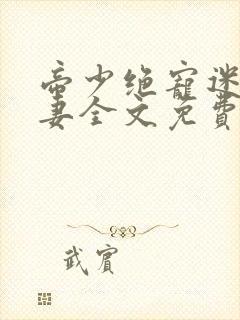 帝少绝寵迷
妻全文免費
武賓